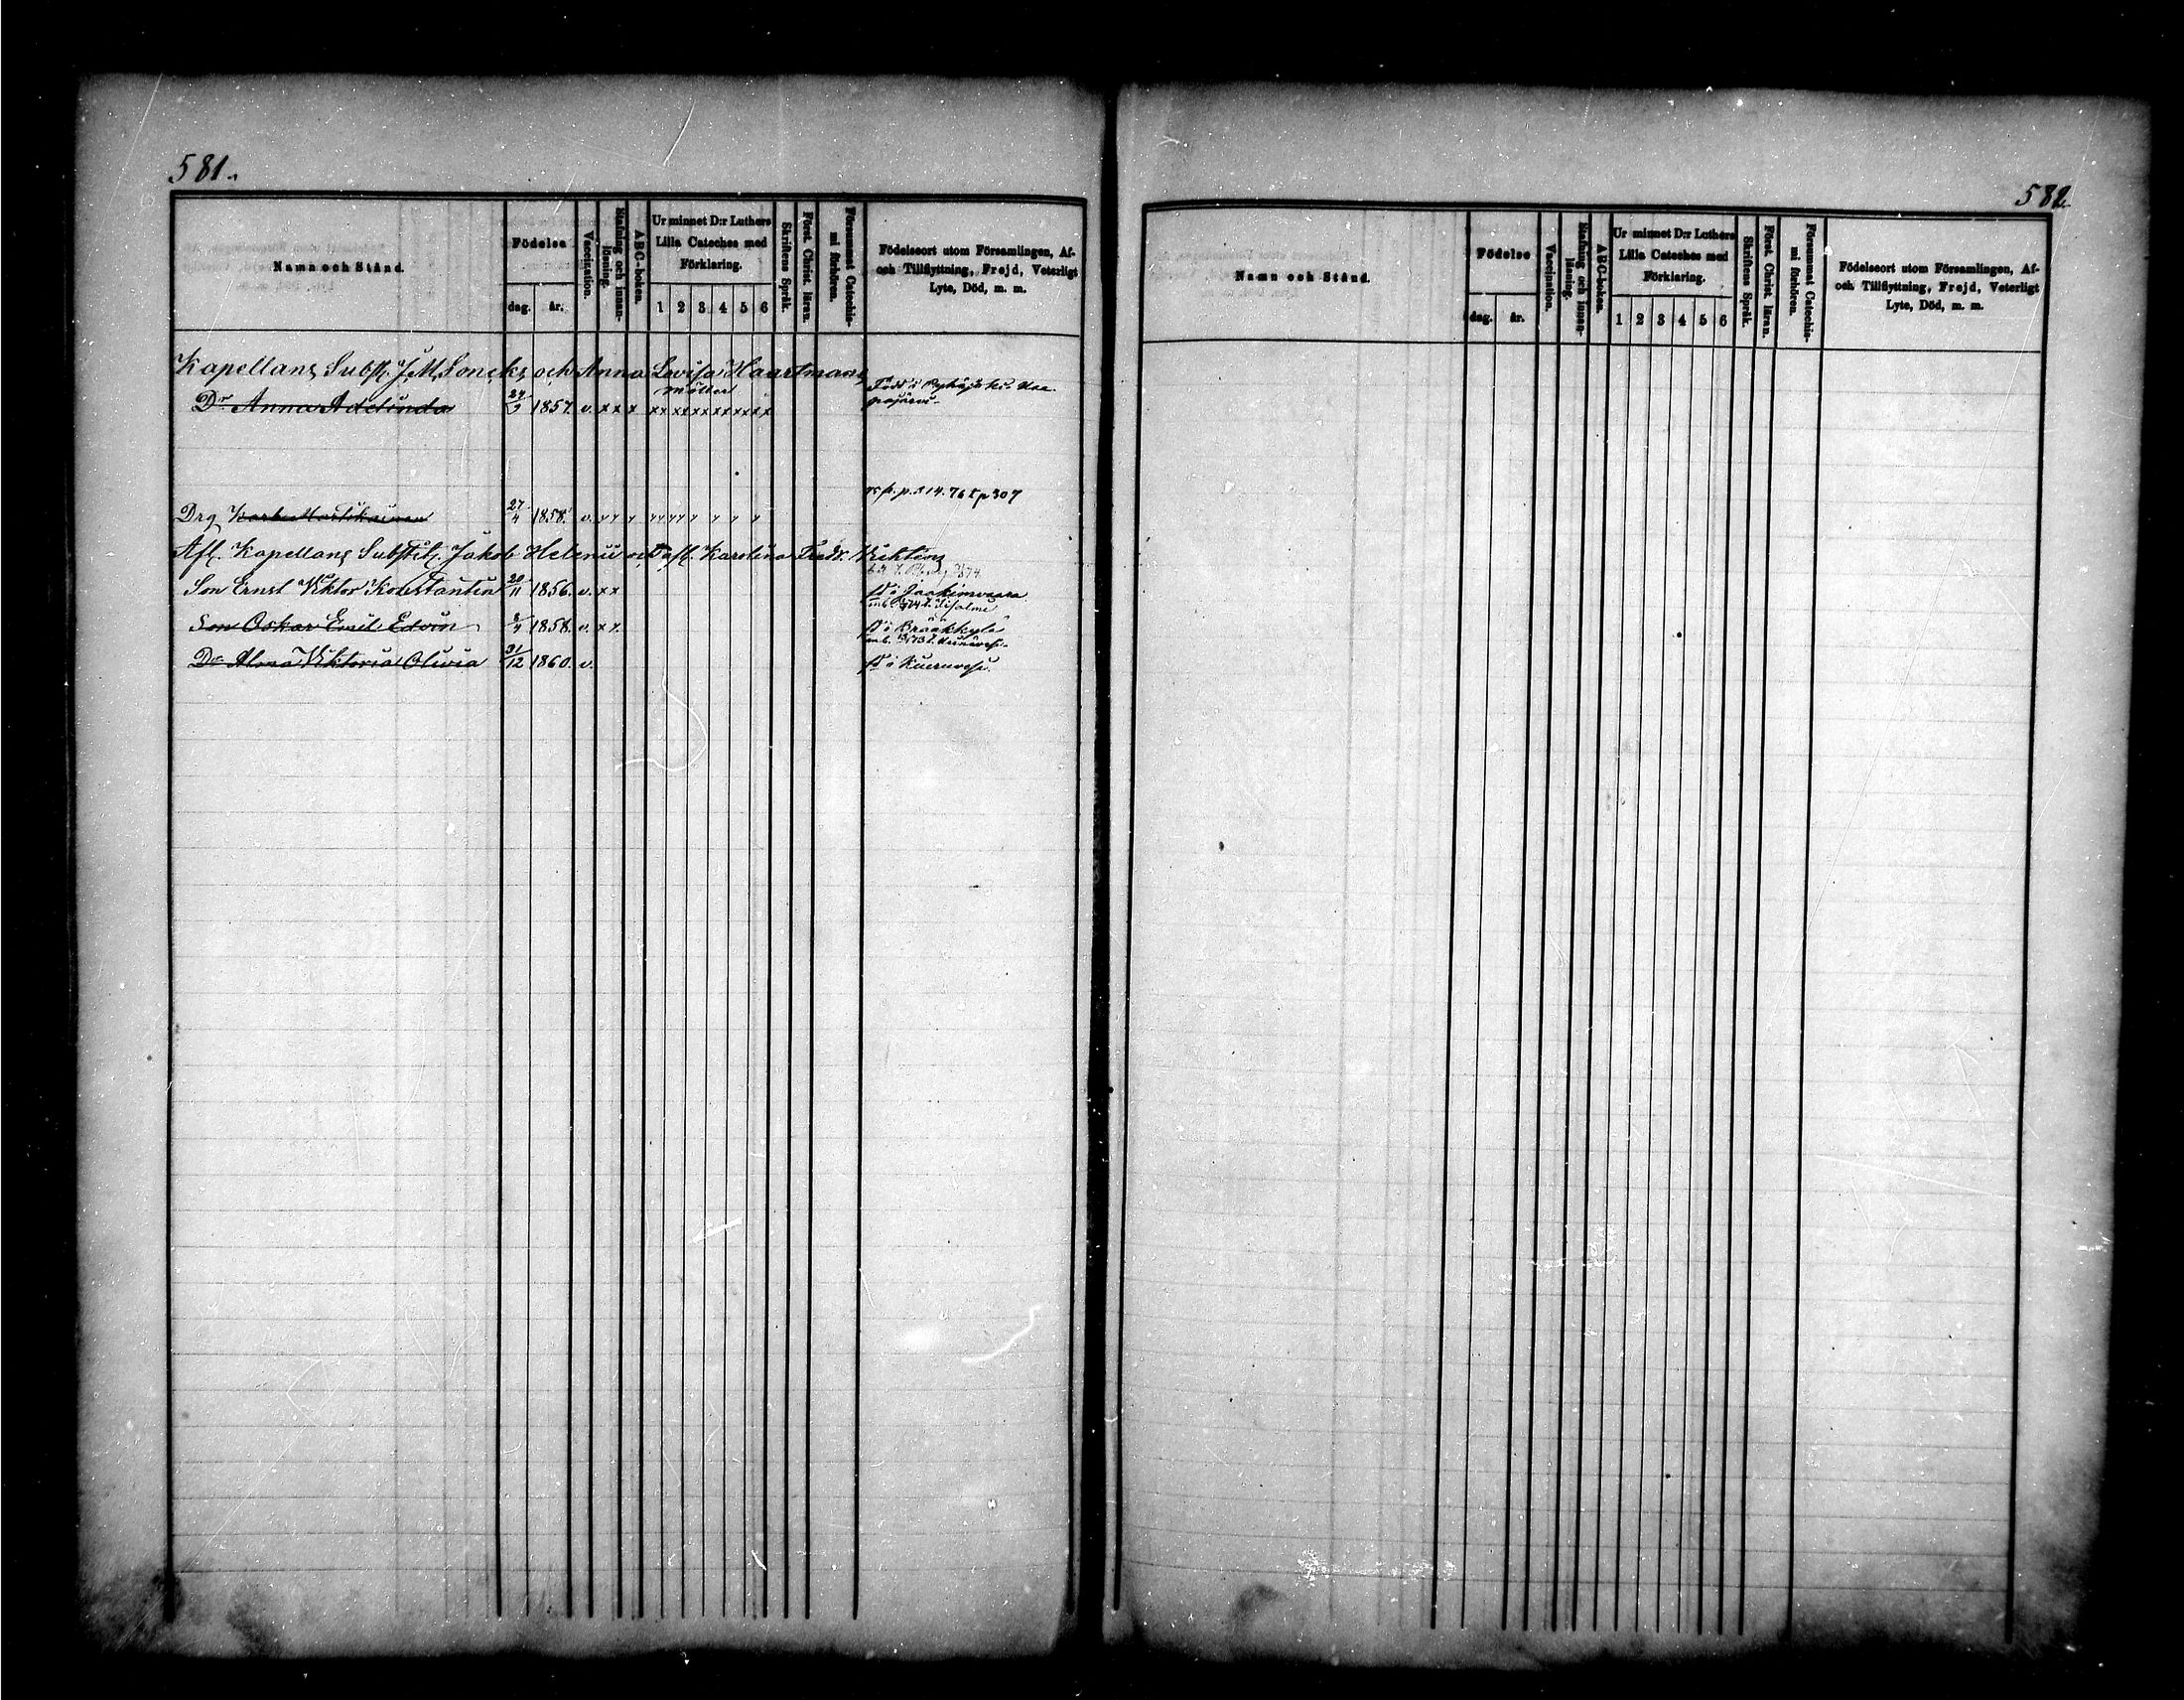 581.
Namn och Stånd.
Födelse
dag.
år.
Vaccination.
Stafning och innan-
läsning.
ABC-boken.
Ur minnet D:r Luthers
Lilla Cateches med
Förklaring.
1 2 3 4 5 6
Skriftens Språk.
Först. Christ. läran.
Försummat Catechis-
mi förhören.
Födelseort utom Församlingen, Af-
och Tillflyttning, Frejd, Veterligt
Lyte, Död, m. m.
Kapellans Subst. J. M. Loncks och Anna Lovisa Haartmans
Möller
Född i
Dr Anna Adelinda 24/9 1857. v. x x x xx xx xx xx xx xx pajärvi
p. 214. 76 p 307
Drg 27/4 1858. v. x x x xx xx x x x x
Afl. Kapellans Substit. Jakob Helenii och afl. Karolina Fredr.
Son Ernst Viktor Konstantin 20/11 1856. v. x x fd i Jaakimvaara
Son Oskar Emil Edvin 2/4 1858. v. x x. fd i Braakkylä
Dr Alma Viktoria Olivia 31/12 1860. v. fd i
582.
Namn och Stånd.
Födelse
dag.
år.
Vaccination.
Stafning och innan-
läsning.
ABC-boken.
Ur minnet D:r Luthers
Lilla Cateches med
Förklaring.
1 2 3 4 5 6
Skriftens Språk.
Först. Christ. läran.
Försummat Catechis-
mi förhören.
Födelseort utom Församlingen, Af-
och Tillflyttning, Frejd, Veterligt
Lyte, Död, m. m.